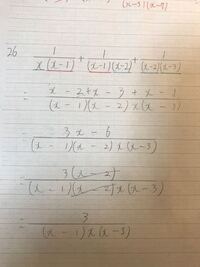 (x-3)(x-9)
26 1/x(x-1) + 1/(x-1)(x-2) + 1/(x-2)(x-3)
= x-2+x-3+x-1/(x-1)(x-2)x(x-3)
= 3x-6/(x-1)(x-2)x(x-3)
= 3(x-2)/(x-1)(x-2)x(x-3)
= 3/(x-1)x(x-3)